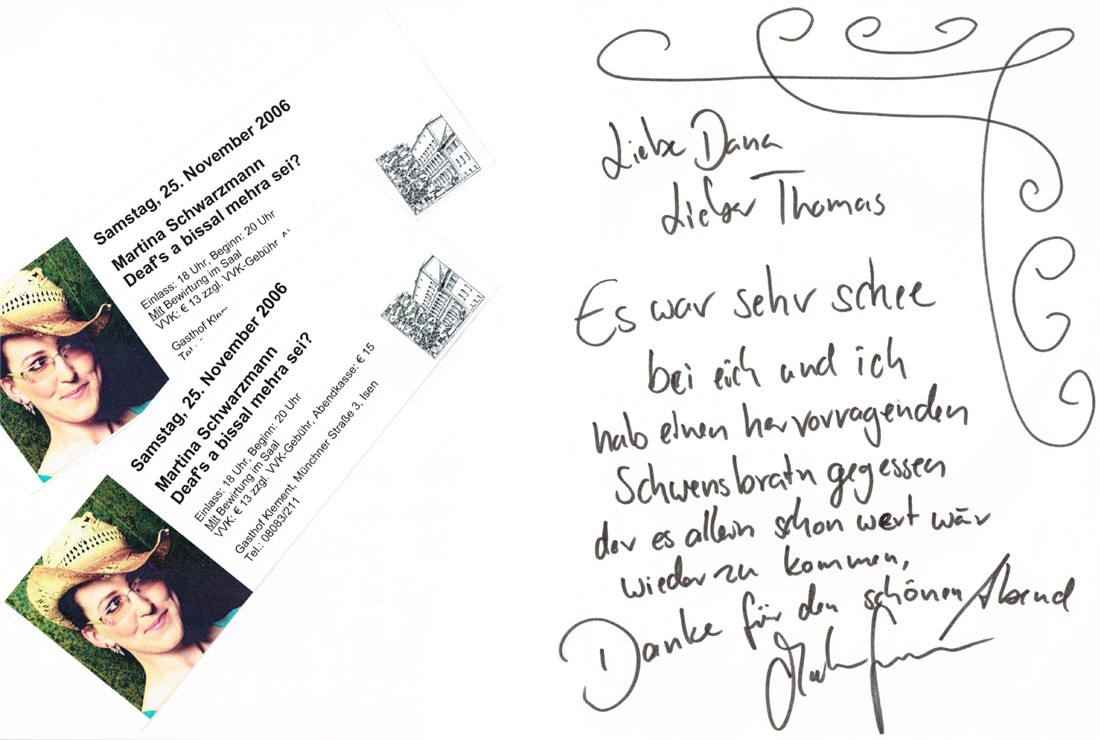 Samstag, 25. November 2006
Martina Schwarzmann
Deaf's a bissal mehra sei?
Einlass: 18 Uhr, Beginn: 20 Uhr
Mit Bewirtung im Saal
VVK: € 13 zzgl. VVK-Gebühr
Gasthof
Samstag, 25. November 2006
Martina Schwarzmann
Deaf's a bissal mehra sei?
Einlass: 18 Uhr, Beginn: 20 Uhr
Mit Bewirtung im Saal
VVK: € 13 zzgl. VVK-Gebühr, Abendkasse: € 15
Gasthof Klement, Münchner Straße 3, Isen
Tel.: 08083/211
Liebe Dana
Lieber Thomas
Es war sehr schee
bei eich und ich
hab einen hervorragenden
Schweinsbratn gegessen
der es allein schon wert wär
wieder zu kommen,
Danke für den schönen Abend